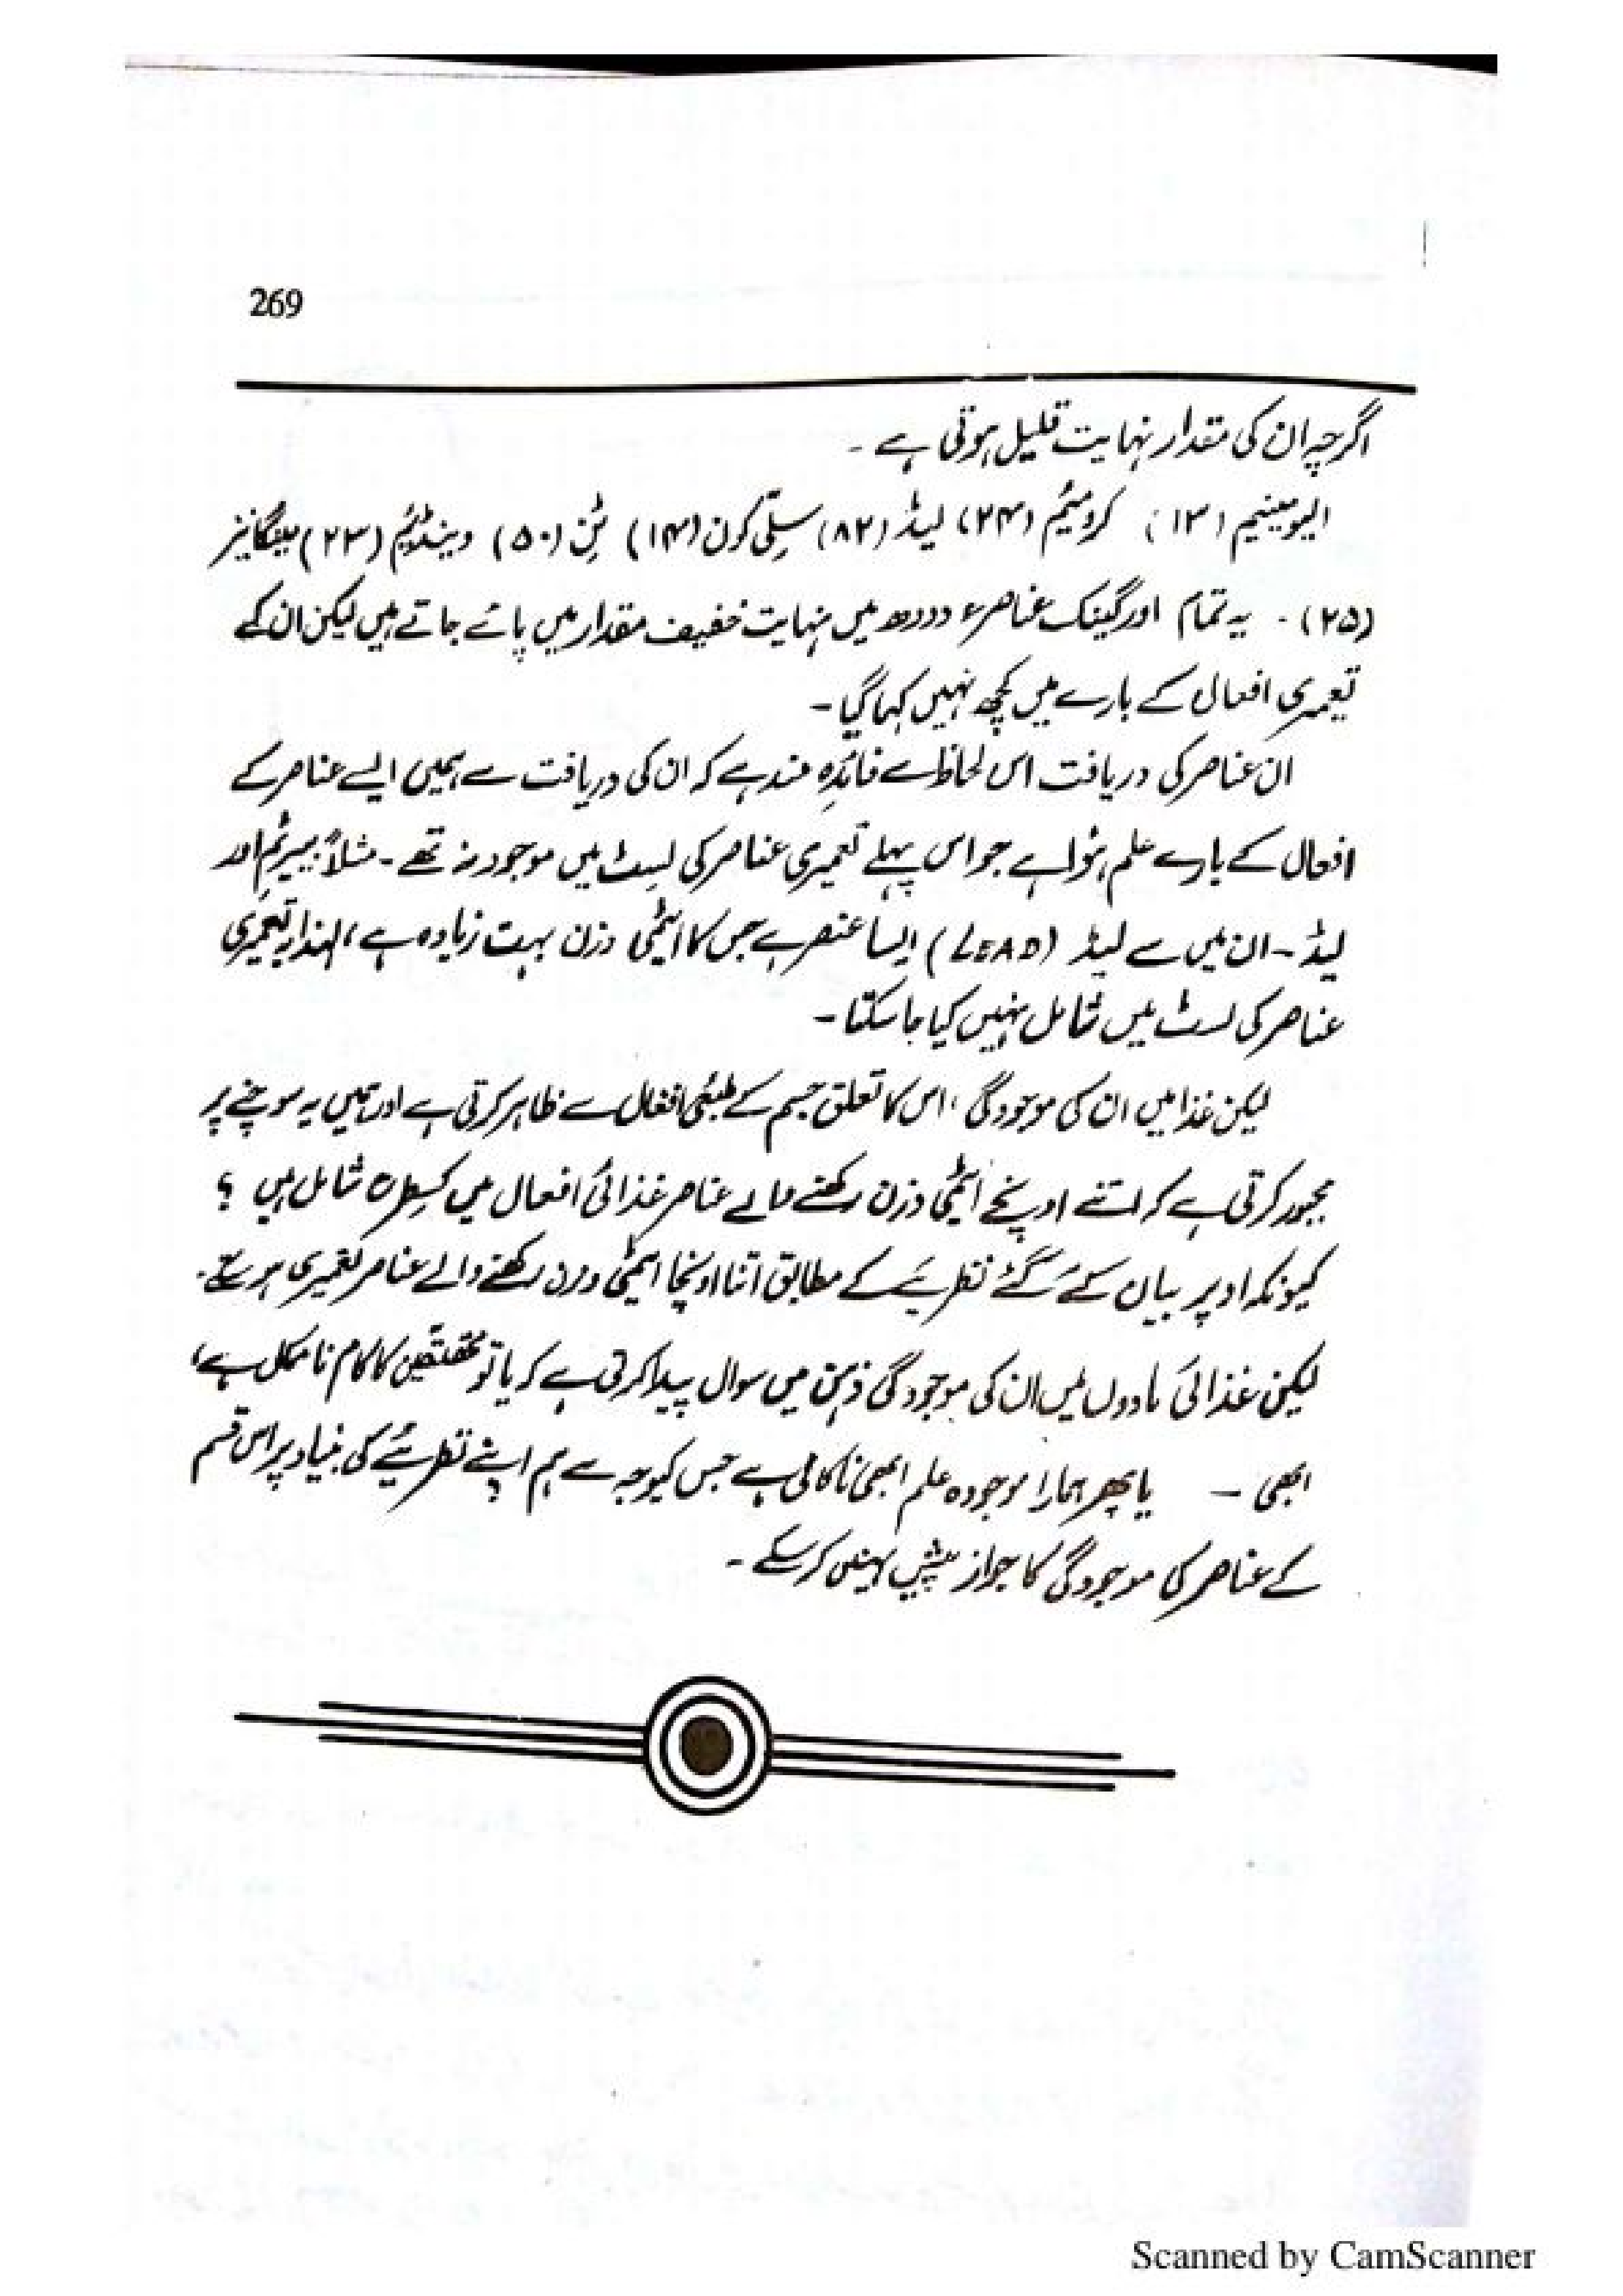 269
اگرچہ ان کی مقدار نہایت قلیل ہوتی ہے ۔
الیومینیم (۱۳) کرومیٔم (۲۴) لیڈ (۸۲) سیلی کون (۱۴) ٹِن (۵۰) وینڈیٔم (۲۳) مینگانیز
(۲۵) ۔ یہ تمام اورگینک عناصر دودھ میں نہایت خفیف مقدار میں پائے جاتے ہیں لیکن ان کے
تعمیری افعال کے بارے میں کچھ نہیں کہا گیا ۔
ان عناصر کی دریافت اس لحاظ سے فائدہ مند ہے کہ ان کی دریافت سے ہمیں ایسے عناصر کے
افعال کے بارے علم ہؤا ہے جو اس پہلے تعمیری عناصر کی لسٹ میں موجود نہ تھے ۔ مثلاً بیریٔم اور
لیڈ ۔ ان میں سے لیڈ (LEAD) ایسا عنصر ہے جس کا ایٹمی وزن بہت زیادہ ہے ، لہٰذا یہ تعمیری
عناصر کی لسٹ میں شامل نہیں کیا جا سکتا ۔
لیکن غذا میں ان کی موجودگی ، اس کا تعلق جسم کے طبعی افعال سے ظاہر کرتی ہے اور ہمیں یہ سوچنے پر
مجبور کرتی ہے کہ اتنے اونچے ایٹمی وزن رکھنے والے عناصر غذائی افعال میں کسطرح شامل ہیں ؟
کیونکہ اوپر بیان کئے گئے نظریے کے مطابق اتنا اونچا ایٹمی وزن رکھنے والے عناصر تعمیری
لیکن غذائی مادوں میں ان کی موجودگی ذہن میں سوال پیدا کرتی ہے کہ یا تو محققین کا کام نا مکمل ہے ،
ابھی ۔ یا پھر ہمارا موجودہ علم ابھی ناکافی ہے جس کیوجہ سے ہم اپنے نظریئے کی بنیاد پر اس قسم
کے عناصر کی موجودگی کا جواز پیش نہیں کر سکے ۔
Scanned by CamScanner